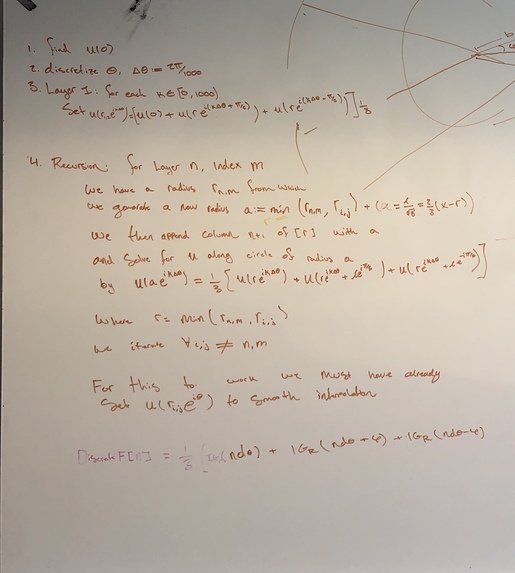 1. find u(0)
2. discretize θ, Δθ := 2π/1000
3. Layer 1: for each k∈[0,1000)
Set = [u(0) + u(re^{i(kΔθ+π/6)}) + u(re^{i(kΔθ-π/6)})] 1/3
4. Recursion: for Layer n, index m
we have a radius r_{n,m} from which
we generate a new radius a := min(r_{n,m}, r_{i,j}) +
we then append column n+1 of [r] with a
and solve for u along circle of radius a
by u(ae^{ikΔθ}) = 1/3 [u(re^{ikΔθ}) + u(re^{ikΔθ} + ) + u(re^{ikΔθ} + )]
where r = min(r_{n,m}, r_{i,j})
we iterate ∀ i,j ≠ n,m
For this to work we must have already
Set u(r_{i,j}e^{iθ}) to smooth information
Discrete F[n] = 1/3 [ ndθ) + IG_R(ndθ+φ) + IG_R(ndθ-φ)